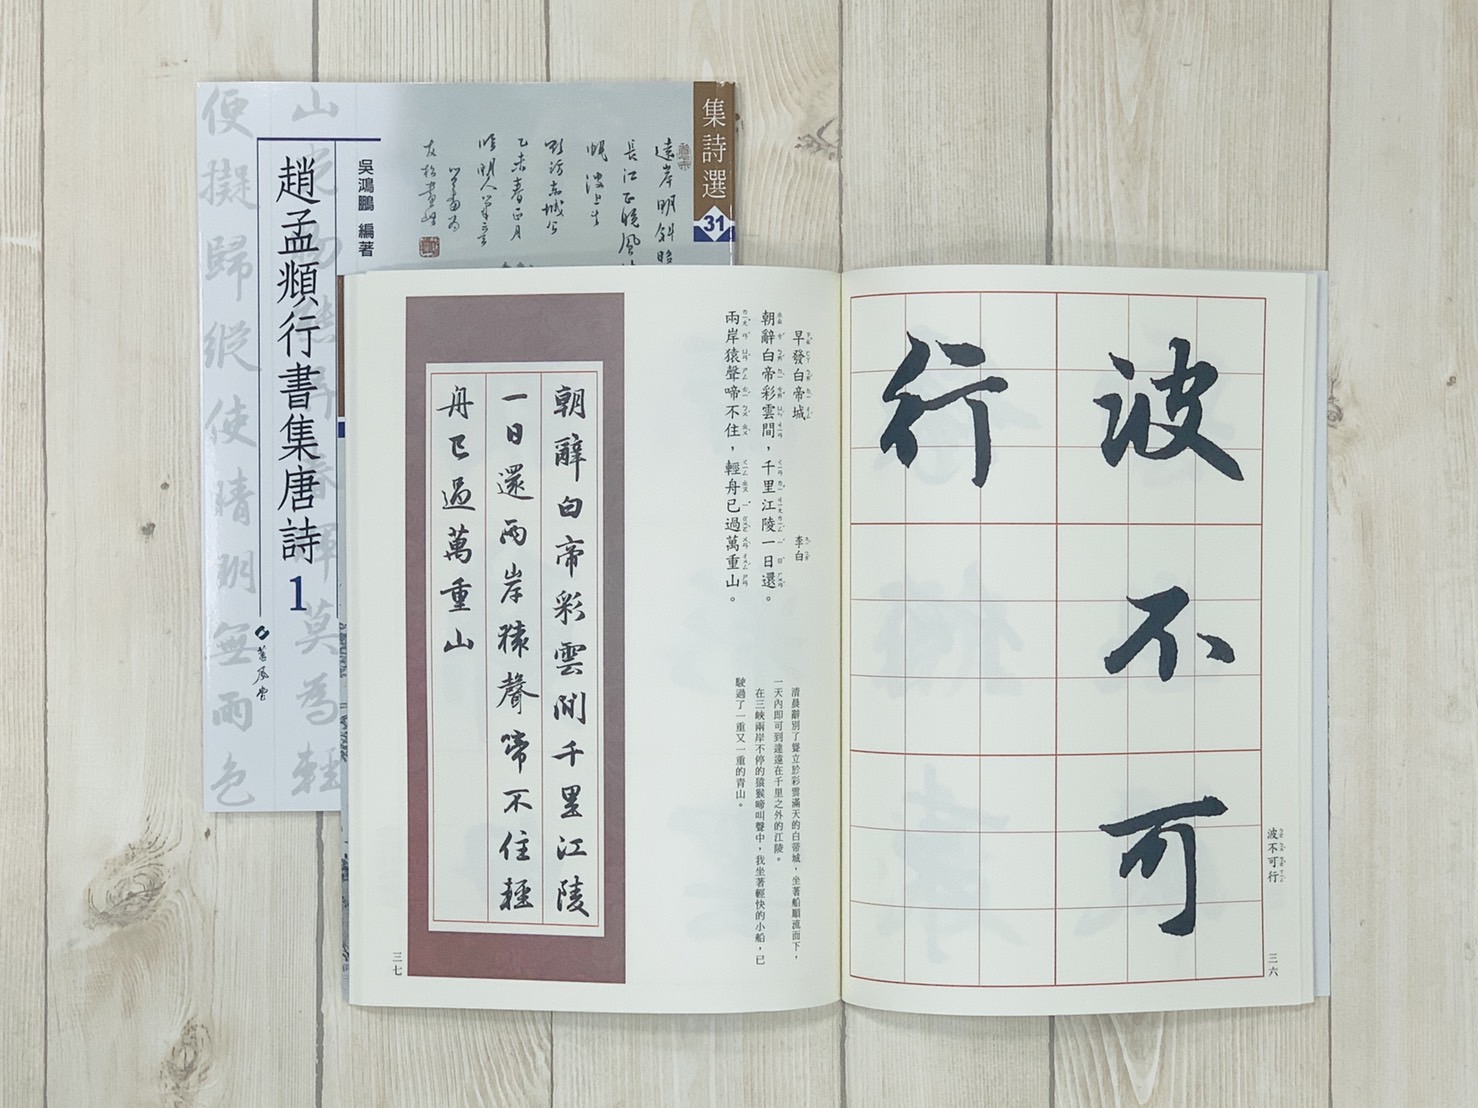 集詩選
31
吳鴻鵬 編著
趙孟頫行書集唐詩 1
蕙風堂
遠岸明斜照
乙未春正月
山光物態弄春輝莫為輕
便擬歸縱使晴明無雨色
波不可
行
波不可行
三六
早發白帝城 李白
朝辭白帝彩雲間，千里江陵一日還。
兩岸猿聲啼不住，輕舟已過萬重山。
清晨辭別了聳立於彩雲滿天的白帝城，坐著船順流而下，
一天內即可到達遠在千里之外的江陵。
在三峽兩岸不停的猿猴啼叫聲中，我坐著輕快的小船，已
駛過了一重又一重的青山。
朝辭白帝彩雲間千里江陵
一日還兩岸猿聲啼不住輕
舟已過萬重山
三七